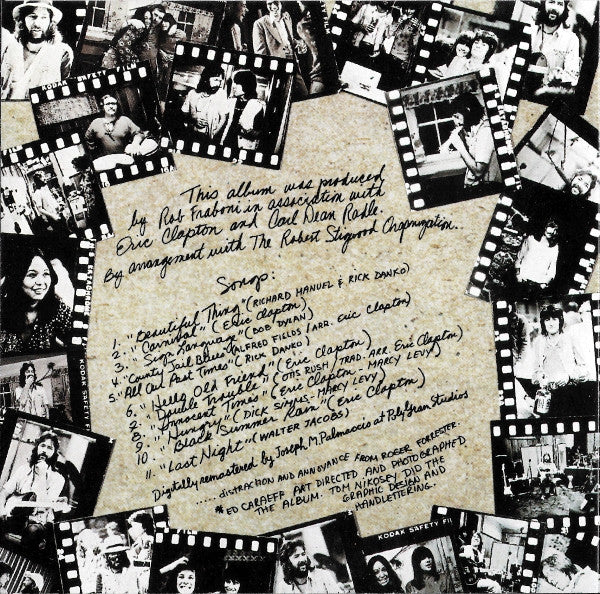 This album was produced
by Rob Fraboni in association with
Eric Clapton and Carl Dean Radle.
By arrangement with The Robert Stigwood Organization.
Songs:
1. "Beautiful Thing" (RICHARD MANUEL & RICK DANKO)
2. "Carnival" (Eric Clapton)
3. "Sign Language" (BOB DYLAN)
4. "County Jail Blues" (ALFRED FIELDS / ARR. Eric Clapton)
5. "All Our Past Times" (RICK DANKO / Eric Clapton)
6. "Hello Old Friend" (Eric Clapton)
7. "Double Trouble" (OTIS RUSH / TRAD. ARR. Eric Clapton)
8. "Innocent Times" (Eric Clapton - MARCY LEVY)
9. "Hungry" (DICK SIMS - MARCY LEVY)
10. "Black Summer Rain" (Eric Clapton)
11. "Last Night" (WALTER JACOBS)
Digitally remastered by Joseph M. Palmaccio at PolyGram Studios
..... DISTRACTION AND ANNOYANCE FROM ROGER FORRESTER.
*ED CARAEFF ART DIRECTED AND PHOTOGRAPHED
THE ALBUM. TOM NIKOSEY DID THE
GRAPHIC DESIGN AND
HANDLETTERING.
KODAK SAFETY FILM
KODAK SAFETY FI
KODAK